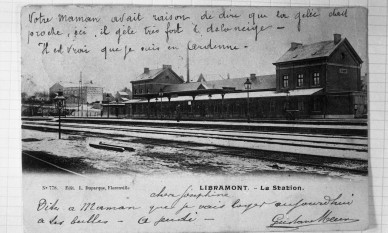 Votre Maman avait raison de dire que la gelée était
proche, ici, il gèle très fort & de la neige –
Il est vrai que je suis en Ardenne –
N° 778. Edit. L. Duparque, Florenville
LIBRAMONT. – La Station.
chère Joséphine
Dites à Maman que je vais loger aujourdhui
à ses – A jeudi –
Gustave